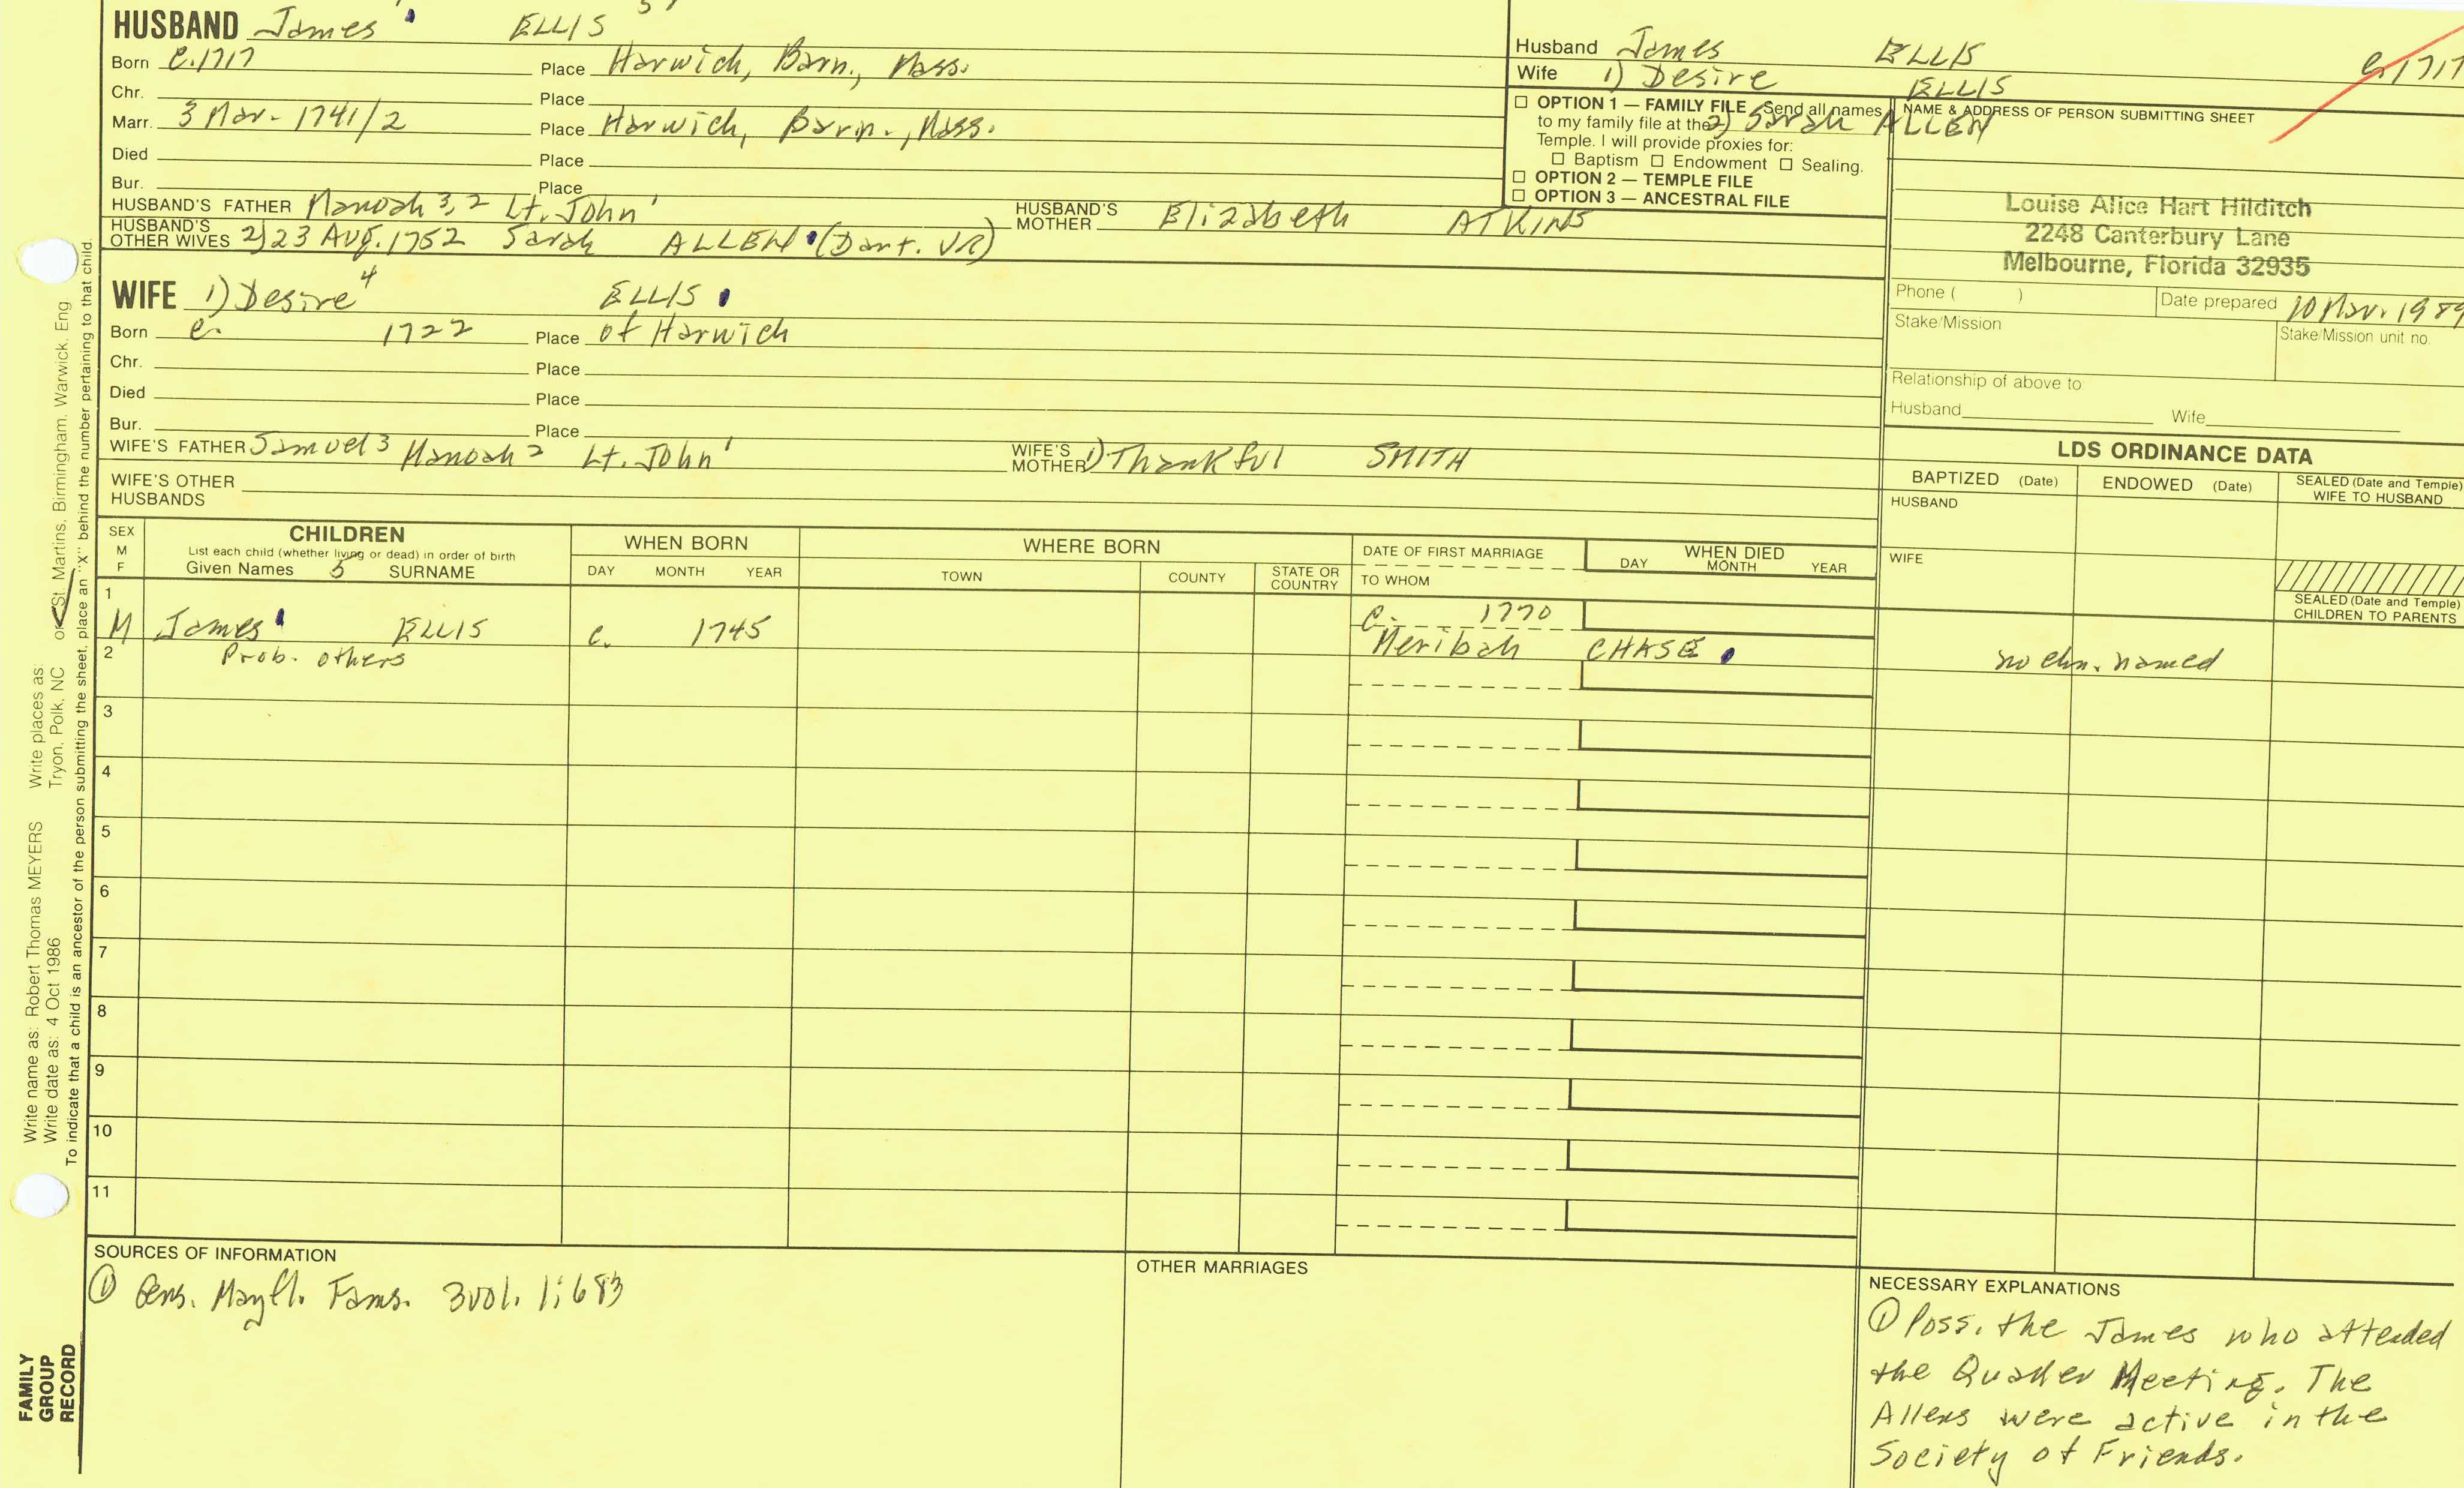 HUSBAND James ELLIS
Born c.1717 Place Harwich, Barn., Mass.
Chr. Place
Marr. 3 Mar. 1741/2 Place Harwich, Barn., Mass.
Died Place
Bur. Place
HUSBAND'S FATHER Manoah 3,2 Lt. John 1 HUSBAND'S MOTHER Elizabeth ATKINS
HUSBAND'S OTHER WIVES 2) 23 Aug. 1752 Sarah ALLEN (Dart. VR)
WIFE 1) Desire 4 ELLIS
Born c. 1722 Place of Harwich
Chr. Place
Died Place
Bur. Place
WIFE'S FATHER Samuel 3 Manoah 2 Lt. John 1 WIFE'S MOTHER 1) Thankful SMITH
WIFE'S OTHER HUSBANDS
Husband James ELLIS c.1717
Wife 1) Desire ELLIS
2) Sarah ALLEN
☐ OPTION 1 — FAMILY FILE Send all names
to my family file at the
Temple. I will provide proxies for:
☐ Baptism ☐ Endowment ☐ Sealing.
☐ OPTION 2 — TEMPLE FILE
☐ OPTION 3 — ANCESTRAL FILE
NAME & ADDRESS OF PERSON SUBMITTING SHEET
Louise Alice Hart Hilditch
2248 Canterbury Lane
Melbourne, Florida 32935
Phone ( ) Date prepared 10 Mar. 1989
Stake/Mission Stake/Mission unit no.
Relationship of above to
Husband Wife
LDS ORDINANCE DATA
BAPTIZED (Date) ENDOWED (Date) SEALED (Date and Temple) WIFE TO HUSBAND
HUSBAND
WIFE
SEALED (Date and Temple)
CHILDREN TO PARENTS
SEX M F
CHILDREN
List each child (whether living or dead) in order of birth
Given Names 5 SURNAME
WHEN BORN
DAY MONTH YEAR
WHERE BORN
TOWN COUNTY STATE OR COUNTRY
DATE OF FIRST MARRIAGE
TO WHOM
WHEN DIED
DAY MONTH YEAR
1
M James ELLIS c. 1745 c. 1770
Meribah CHASE
2 Prob. others no chn. named
3
4
5
6
7
8
9
10
11
SOURCES OF INFORMATION
① Gens. Mayfl. Fams. 3vol. 1:683
OTHER MARRIAGES
NECESSARY EXPLANATIONS
① Poss. the James who attended
the Quaker Meeting. The
Allens were active in the
Society of Friends.
Write name as: Robert Thomas MEYERS Write places as:
Write date as: 4 Oct 1986 Tryon, Polk, NC or St. Martins, Birmingham, Warwick, Eng
To indicate that a child is an ancestor of the person submitting the sheet, place an "X" behind the number pertaining to that child.
FAMILY
GROUP
RECORD